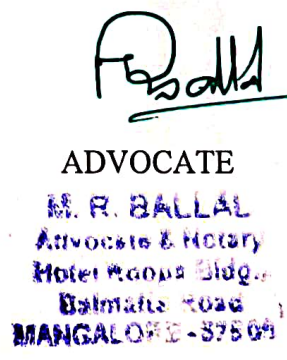 ADVOCATE
M. R. BALLAL
Advocate & Notary
Hotel Roopa Bldg.,
Balmatta Road
MANGALORE -